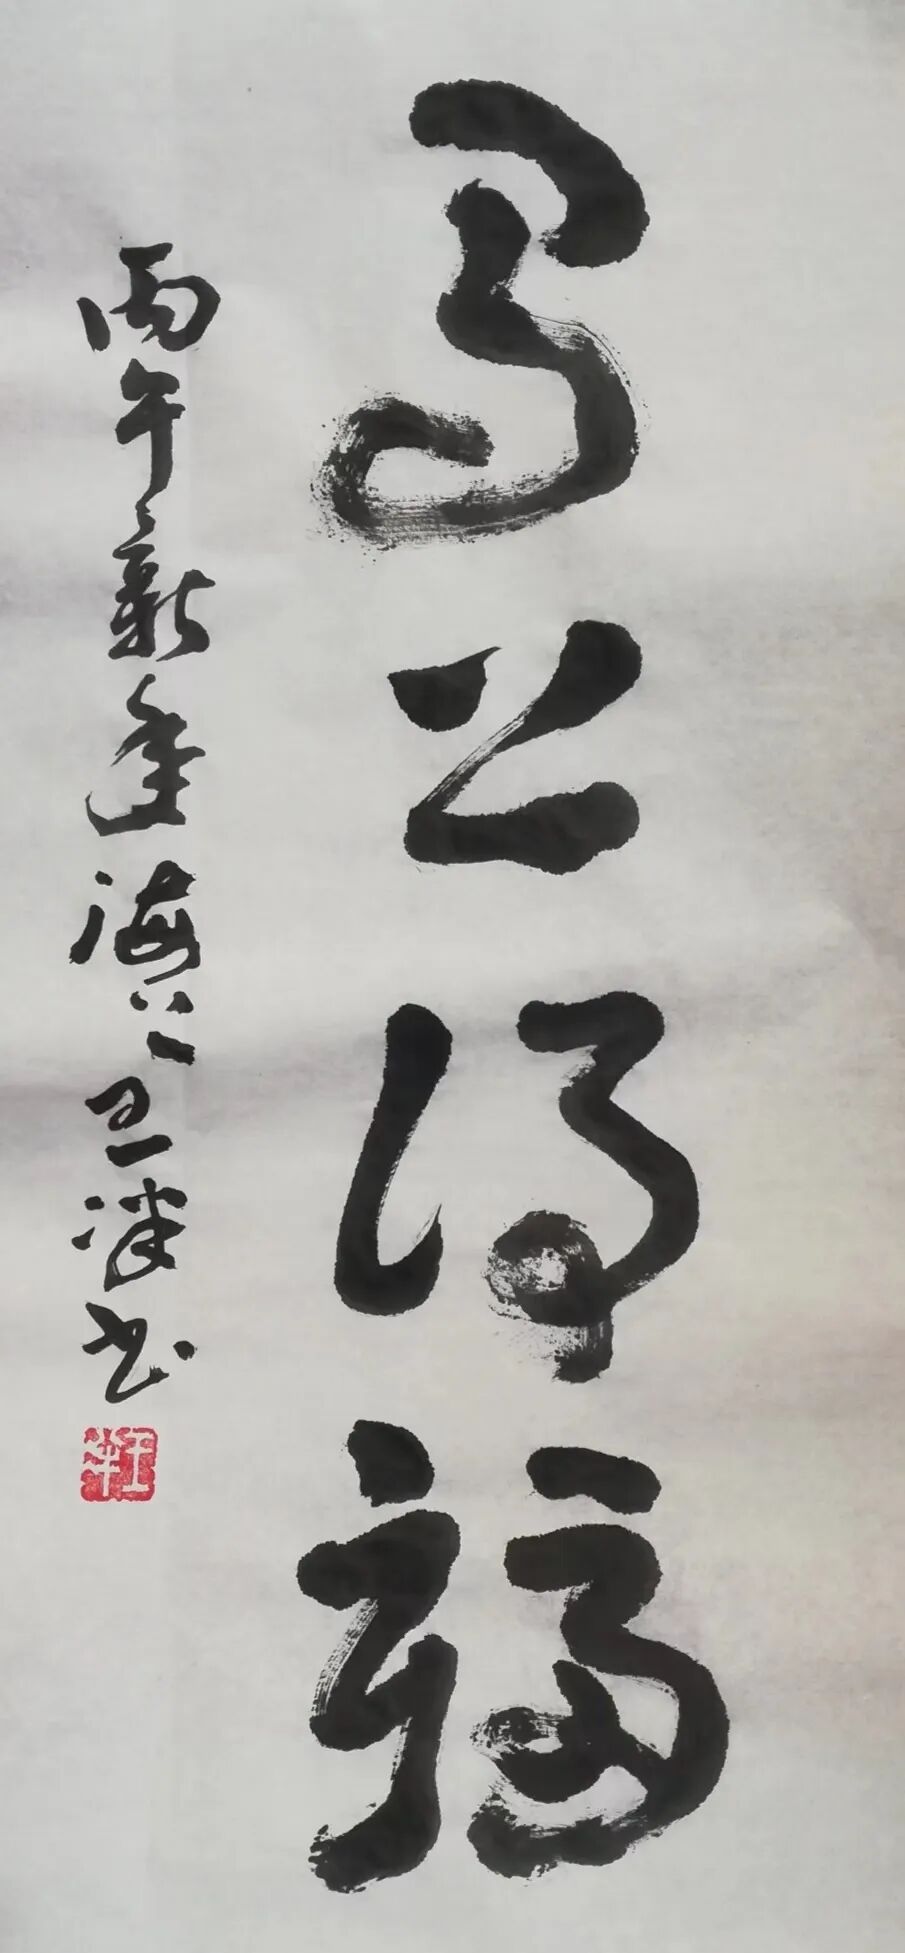 马上得福
丙午新年海上王书